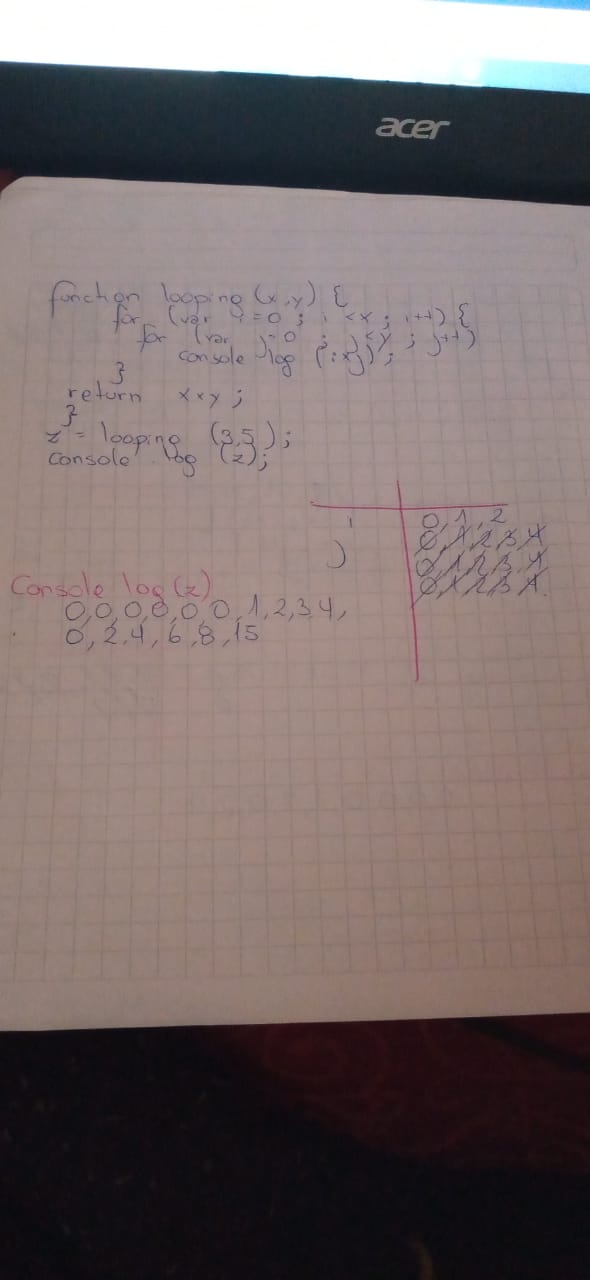 acer
function looping (x,y) {
for (var i=0 ; i <x ; i++) {
for (var j=0 ; j<y ; j++)
console log (i*j);
}
return x*y ;
}
z = looping (3,5);
console.log (z);
i 0,1,2
j 0,1,2,3,4
0,1,2,3,4
0,1,2,3,4.
Console log(z)
0,0,0,0,0,0,1,2,3,4,
0,2,4,6,8,15